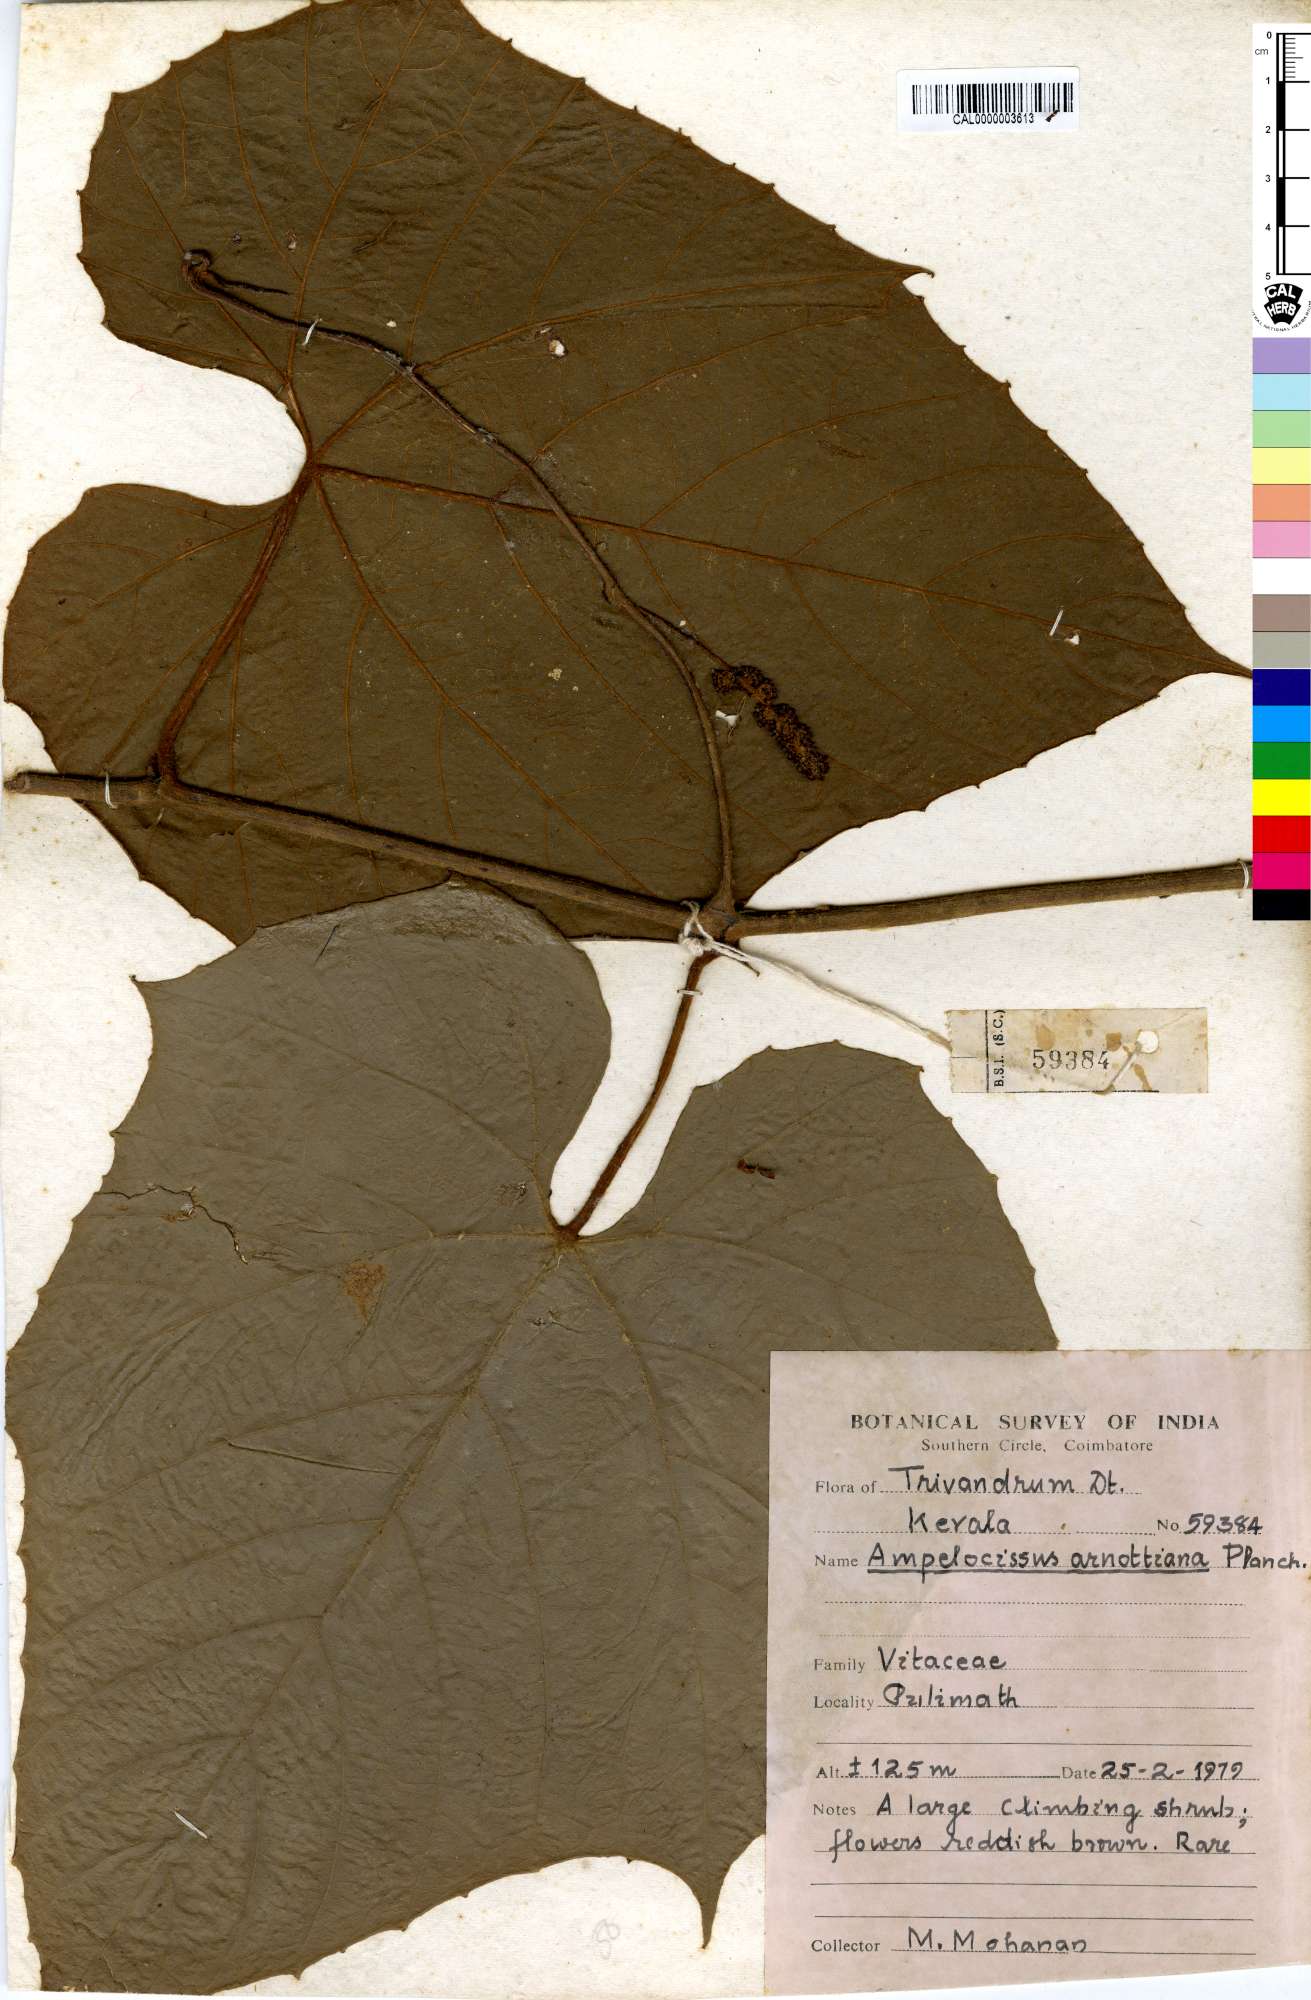 CAL0000003613
0
cm
1
2
3
4
5
CAL
HERB
B.S.I. (S.C.)
59384
BOTANICAL SURVEY OF INDIA
Southern Circle, Coimbatore
Flora of Trivandrum Dt.
Kerala No. 59384
Name Ampelocissus arnottiana Planch.
Family Vitaceae
Locality Pulimath
Alt. ± 125 m Date 25-2-1979
Notes A large climbing shrub;
flowers reddish brown. Rare
Collector M. Mohanan